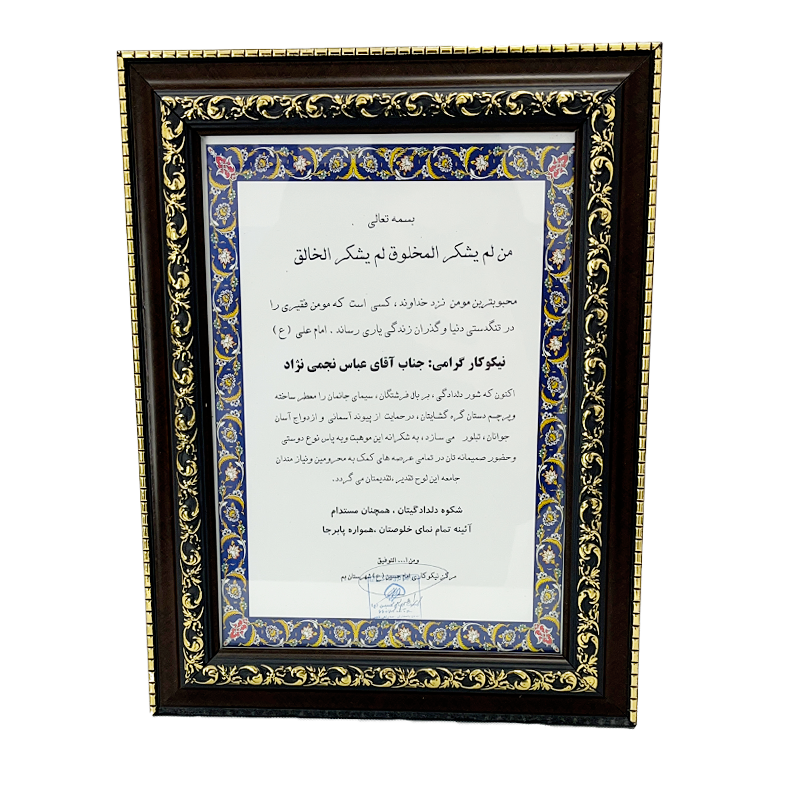 بسمه تعالی
من لم یشکر المخلوق لم یشکر الخالق
محبوبترین مومن نزد خداوند، کسی است که مومن فقیری را
در تنگدستی دنیا و گذران زندگی یاری رساند . امام علی (ع)
نیکوکار گرامی: جناب آقای عباس نجمی نژاد
اکنون که شور دلدادگی ، بر بال فرشتگان ، سیمای جانمان را معطر ساخته
وپرچم دستان گره گشایتان ، درحمایت از پیوند آسمانی و ازدواج آسان
جوانان ، تبلور می سازد ، به شکرانه این موهبت وبه پاس نوع دوستی
وحضور صمیمانه تان در تمامی عرصه های کمک به محرومین ونیاز مندان
جامعه این لوح تقدیر ،تقدیمتان می گردد.
شکوه دلدادگیتان ، همچنان مستدام
آئینه تمام نمای خلوصتان ،همواره پابرجا
ومن ا... التوفیق
مرکز نیکوکاری امام حسین (ع) شهرستان بم